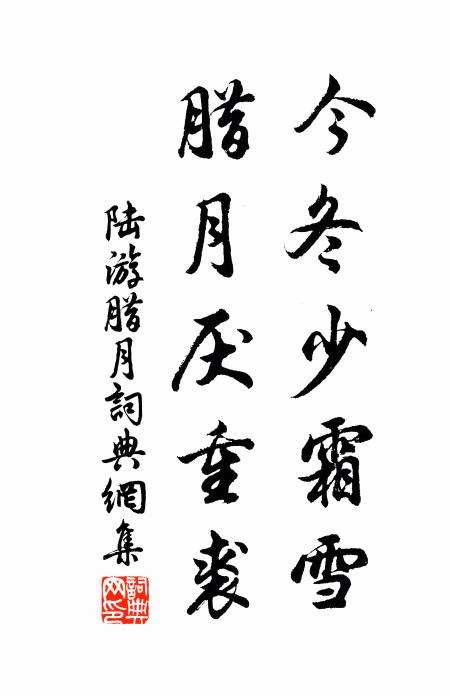 今冬少霜雪
腊月厌重裘
陆游腊月詞典網集
詞典